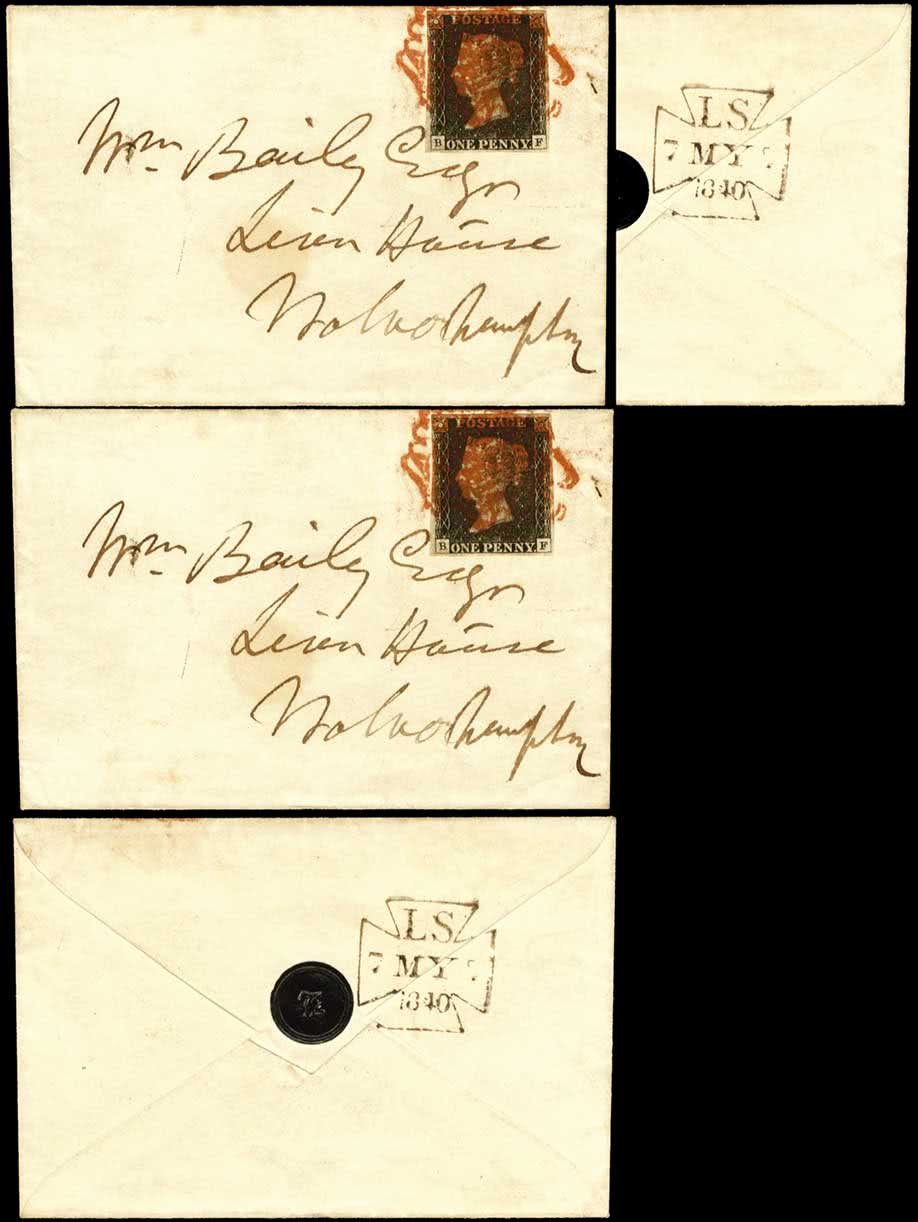 POSTAGE
B ONE PENNY F
Wm Baily Esqr
House
Wolverhampton
LS
7 MY 7
1840
POSTAGE
B ONE PENNY F
Wm Baily Esqr
House
Wolverhampton
LS
7 MY 7
1840